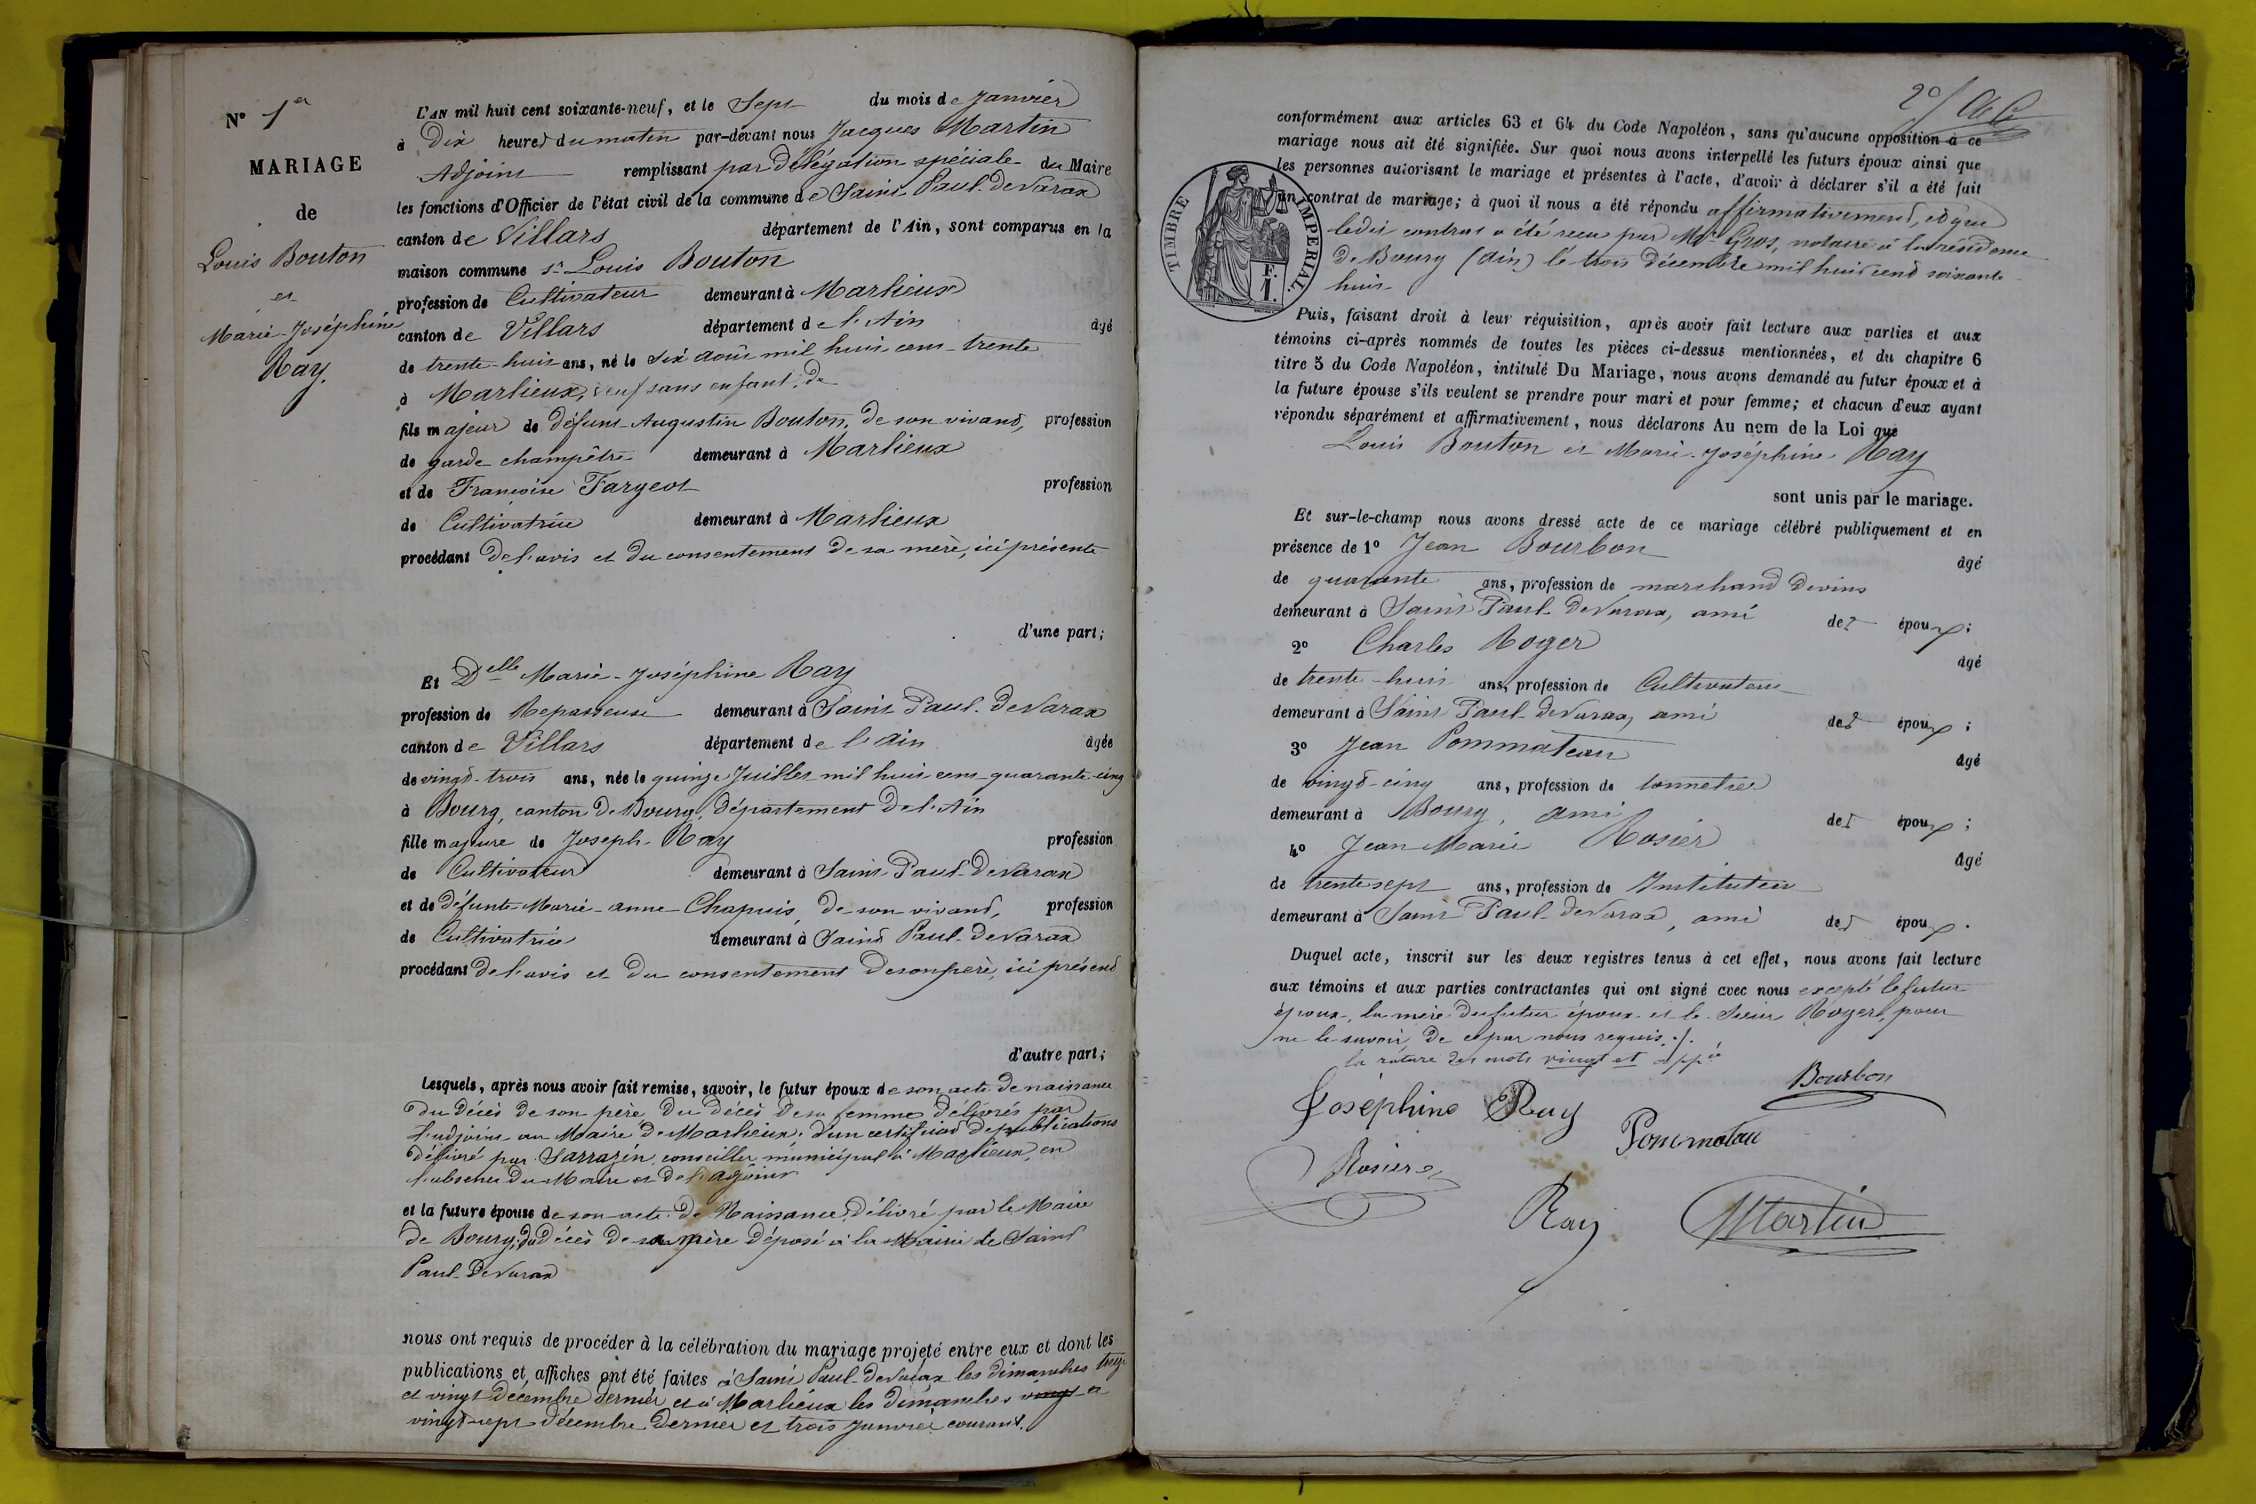 N° 1er
MARIAGE
de
Louis Bouton
et
Marie-Joséphine
Ray.
L'AN mil huit cent soixante-neuf, et le Sept du mois de Janvier
à Dix heures du matin par-devant nous Jacques Martin
Adjoint remplissant par Délégation spéciale du Maire
les fonctions d'Officier de l'état civil de la commune de Saint Paul-de Varax
canton de Villars département de l'Ain, sont comparus en la
maison commune sr Louis Bouton
profession de Cultivateur demeurant à Marlieux
canton de Villars département de l'Ain âgé
de trente-huit ans, né le Six août mil huit cent trente
à Marlieux, veuf sans enfant, de
fils majeur de défunt Augustin Bouton, de son vivant, profession
de garde champêtre demeurant à Marlieux
et de Françoise Fargeot profession
de Cultivatrice demeurant à Marlieux
procédant de l'avis et du consentement de sa mère, ici présente
d'une part;
Et Delle Marie-Joséphine Ray
profession de Repasseuse demeurant à Saint Paul-de Varax
canton de Villars département de l'Ain âgée
de vingt-trois ans, née le quinze Juillet mil huit cent quarante-cinq
à Bourg, canton de Bourg, département de l'Ain
fille majeure de Joseph Ray profession
de Cultivateur demeurant à Saint Paul-de Varax
et de défunte Marie-anne Chapuis, de son vivant, profession
de Cultivatrice demeurant à Saint Paul-de Varax
procédant de l'avis et du consentement de son père, ici présent
d'autre part;
Lesquels, après nous avoir fait remise, savoir, le futur époux de son acte de naissance
du décès de son père, du décès de sa femme délivrés par
l'adjoint au Maire de Marlieux, d'un certificat de publications
délivré par Sarrazin, conseiller municipal à Marlieux, en
l'absence du Maire et de l'adjoint
et la future épouse de son acte de Naissance, délivré par le Maire
de Bourg, du décès de sa mère déposé à la Mairie de Saint
Paul-de Varax
nous ont requis de procéder à la célébration du mariage projeté entre eux et dont les
publications et affiches ont été faites à Saint Paul-de Varax les dimanches treize
et vingt décembre dernier et à Marlieux les dimanches vingt et
vingt-sept décembre dernier et trois Janvier courant.
conformément aux articles 63 et 64 du Code Napoléon, sans qu'aucune opposition à ce
mariage nous ait été signifiée. Sur quoi nous avons interpellé les futurs époux ainsi que
les personnes autorisant le mariage et présentes à l'acte, d'avoir à déclarer s'il a été fait
un contrat de mariage; à quoi il nous a été répondu affirmativement, et que
ledit contrat a été reçu par Me Gros, notaire à la résidence
de Bourg (Ain) le trois décembre mil huit cent soixante-
huit
TIMBRE IMPÉRIAL.
F.
1.
Puis, faisant droit à leur réquisition, après avoir fait lecture aux parties et aux
témoins ci-après nommés de toutes les pièces ci-dessus mentionnées, et du chapitre 6
titre 5 du Code Napoléon, intitulé Du Mariage, nous avons demandé au futur époux et à
la future épouse s'ils veulent se prendre pour mari et pour femme; et chacun d'eux ayant
répondu séparément et affirmativement, nous déclarons Au nom de la Loi que
Louis Bouton et Marie-Joséphine Ray
sont unis par le mariage.
Et sur-le-champ nous avons dressé acte de ce mariage célébré publiquement et en
présence de 1° Jean Bourbon âgé
de quarante ans, profession de marchand de vins
demeurant à Saint Paul-de Varax, ami des époux;
2° Charles Roger âgé
de trente-huit ans, profession de Cultivateur
demeurant à Saint Paul-de Varax, ami des époux;
3° Jean Pommateau âgé
de vingt-cinq ans, profession de tonnelier
demeurant à Bourg, ami des époux;
4° Jean Marie Rosier âgé
de trente sept ans, profession de Instituteur
demeurant à Saint Paul-de Varax, ami des époux.
Duquel acte, inscrit sur les deux registres tenus à cet effet, nous avons fait lecture
aux témoins et aux parties contractantes qui ont signé avec nous excepté le futur
époux, la mère du futur époux et le Sieur Roger, pour
ne le savoir, de ce par nous requis ./.
la rature des mots vingt et appée
Joséphine Ray
Bourbon
Pommateau
Rosier
Ray
Martin